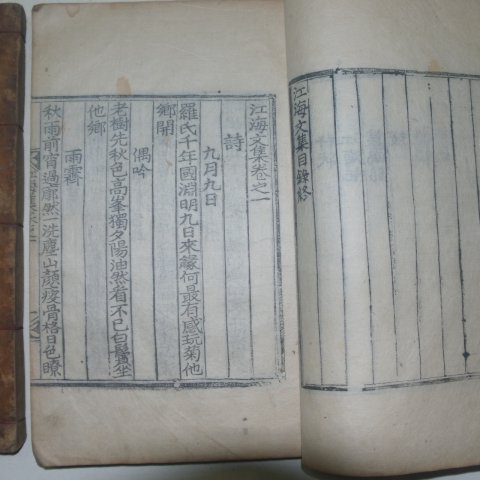 江海文集目錄終
江海文集卷之一
詩
九月九日
羅氏千年國淵明九日來緣何最有感玩菊他
鄉開
偶吟
老樹先秋色高峯獨夕陽油然看不已白鬢坐
他鄉
雨霽
秋雨前宵過廓然洗塵山顏疫骨格日色暸